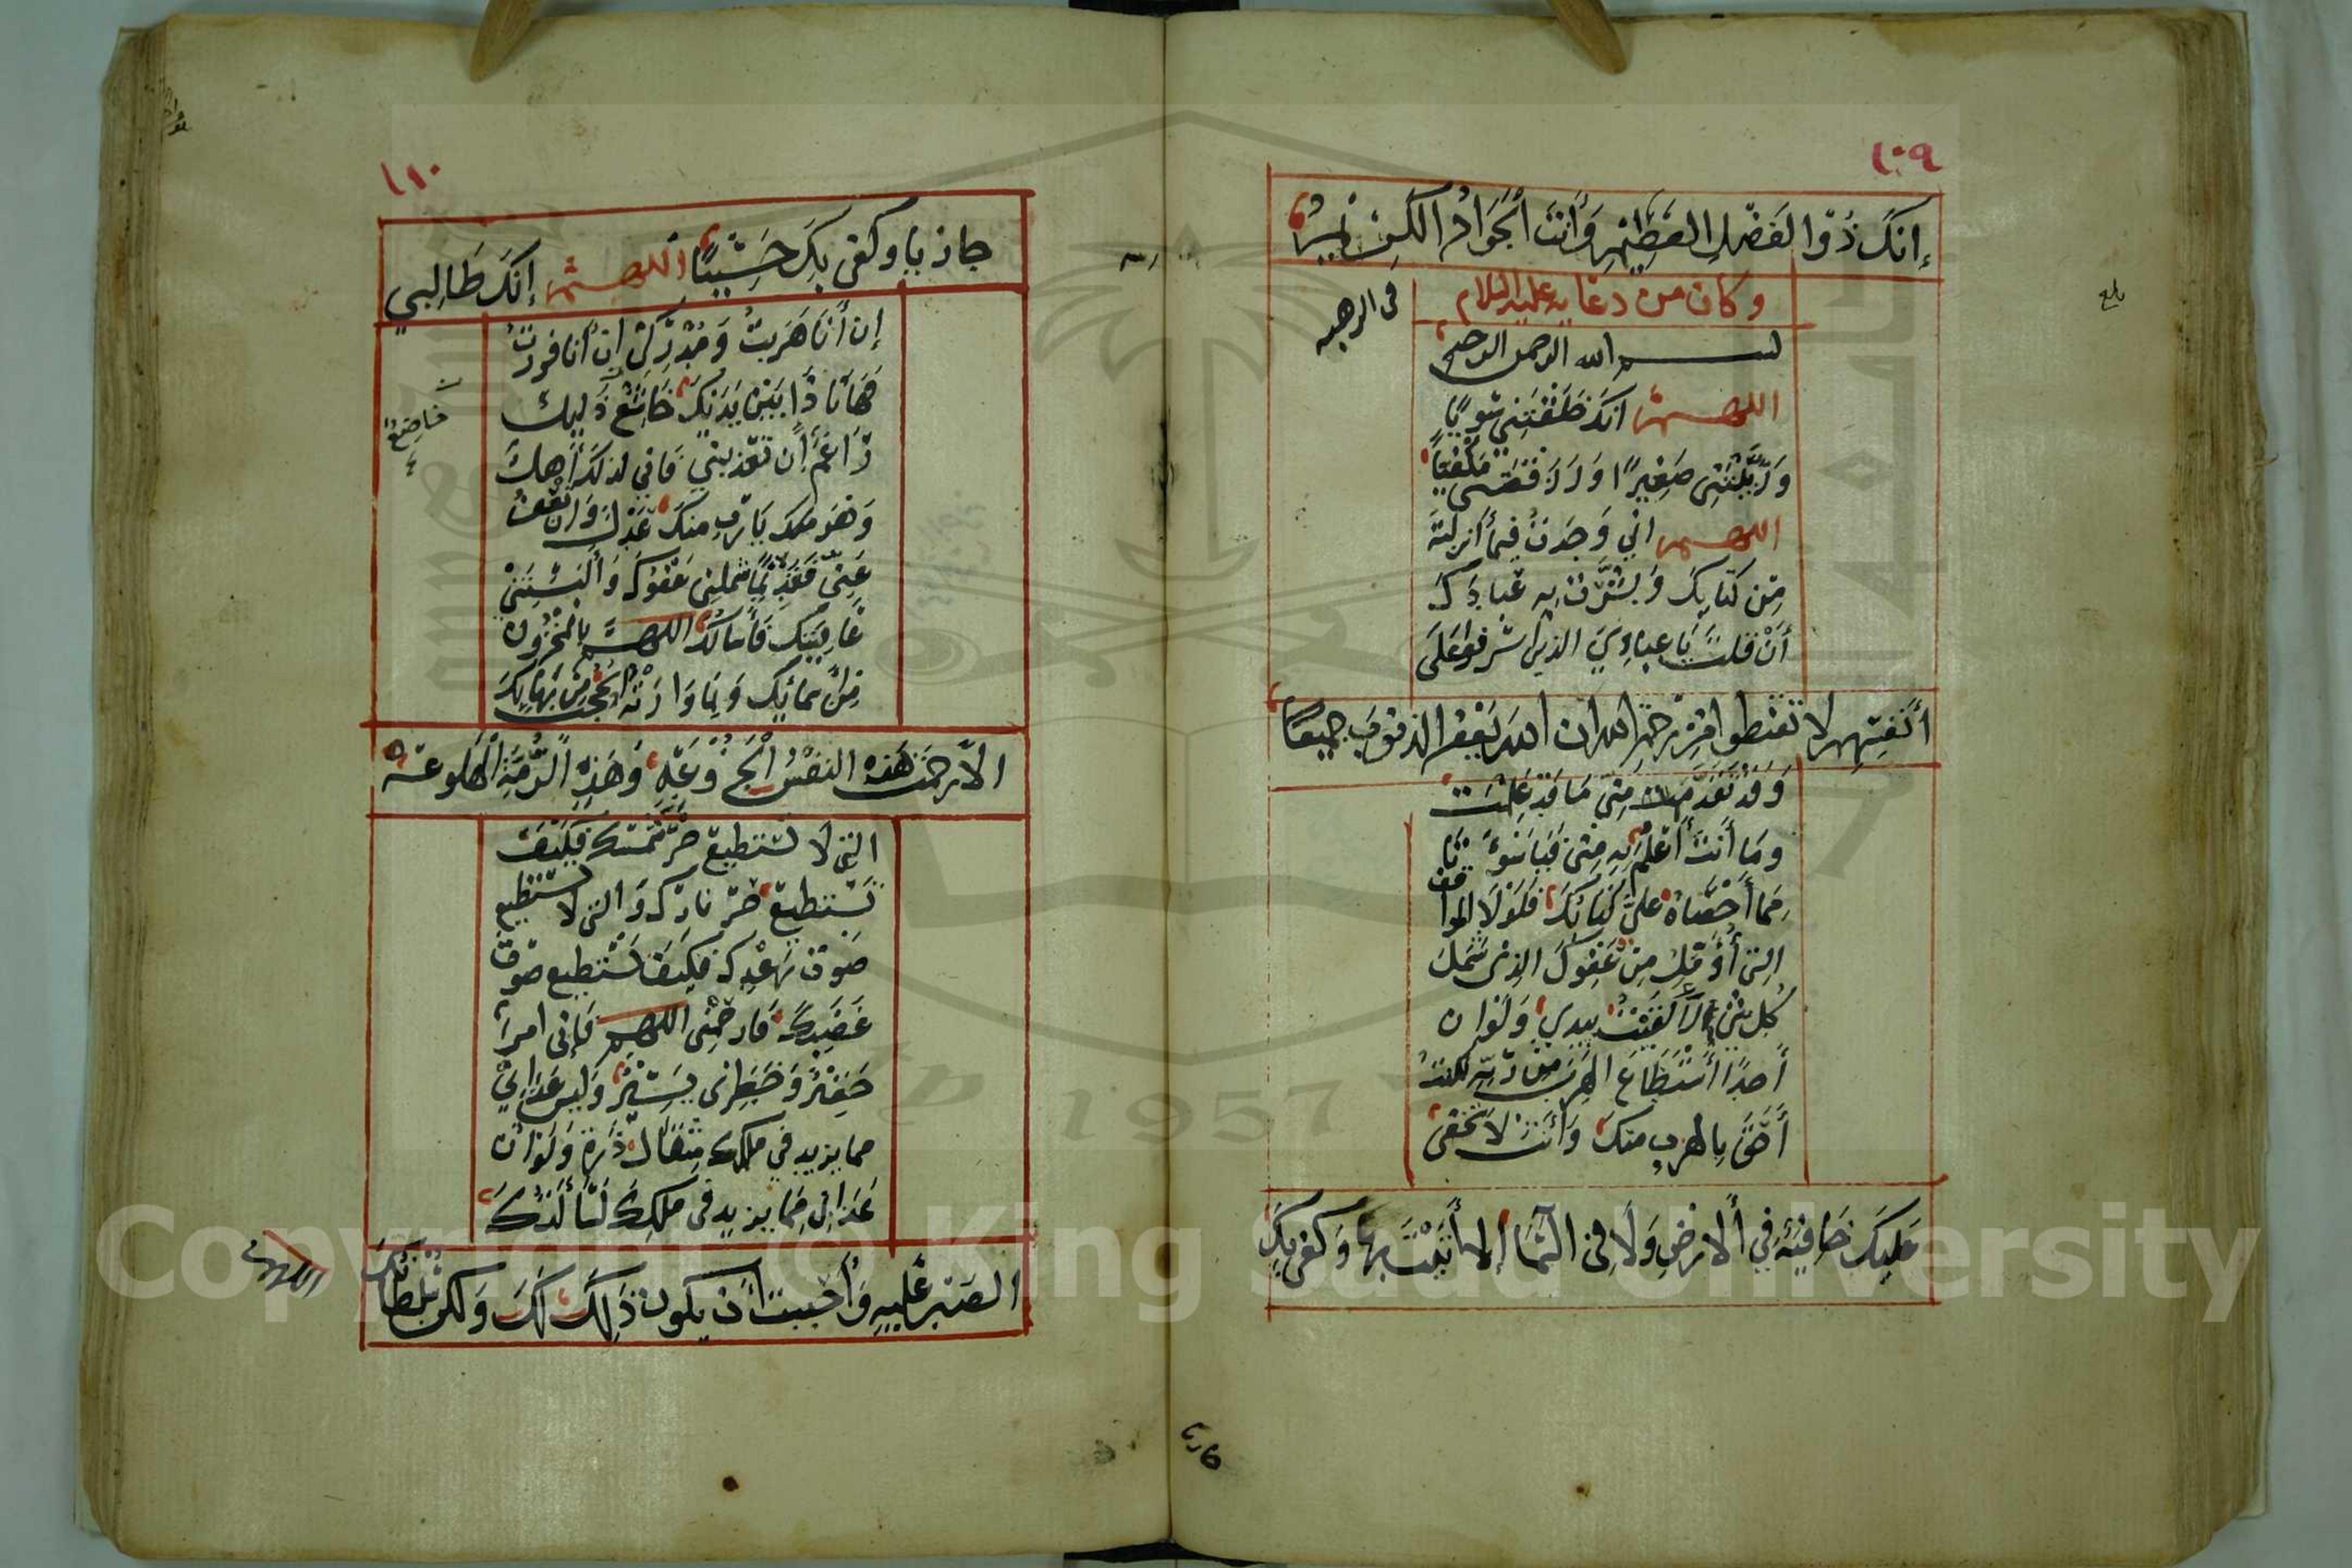 ١٠٩
إنك ذو الفضل العظيم وأنت الجواد الكريم
وكان من دعائه عليه السلام
في الرهبه
بسم الله الرحمن الرحيم
اللهم انك خلقتني سويا
وربيتني صغيرا ورزقتني مكفيا
اللهم اني وجدت فيما أنزلته
من كتابك وبشرت به عبادك
أن قلت يا عبادي الذين اسرفوا على
أنفسهم لا تقنطوا من رحمة الله ان الله يغفر الذنوب جميعا
وقد تقدم مني ما قد علمت
وما أنت أعلم به مني فيا سوءتا
مما أحصاه علي كتابك فلولا المواقف
التي أؤمل من عفوك الذي شمل
كل شئ لألقيت بيدي ولو ان
أحدا استطاع الهرب من ربه لكنت
أحق بالهرب منك وأنت لا تخفى
عليك خافية في الارض ولا في السما إلا أتيت بها وكفى بك
بلغ
١١٠
جازيا وكفى بك حسيبا اللهم إنك طالبي
إن أنا هربت ومدركي إن أنا فررت
فها أنا ذا بين يديك خاشع ذليل
خاضع
راغم إن تعذبني فاني لذلك أهل
وهو يا رب منك عدل وان تعف
عني فقديما شملني عفوك وألبستني
عافيتك فأسألك اللهم بالمخزون
من أسمائك وبما وارته الحجب من بهائك
الا رحمت هذه النفس الجزوعة وهذه الرمة الهلوعة
التي لا تستطيع حر شمسك فكيف
تستطيع حر نارك والتي لا تستطيع
صوت رعدك فكيف تستطيع صوت
غضبك فارحمني اللهم فإني امرء
حقير وخطري يسير وليس عذابي
مما يزيد في ملكك مثقال ذرة ولو أن
عذابي مما يزيد في ملكك لسألتك
الصبر عليه وأحببت أن يكون ذلك لك ولكن سلطانك
اللهم
Copyright © King Saud University
1957